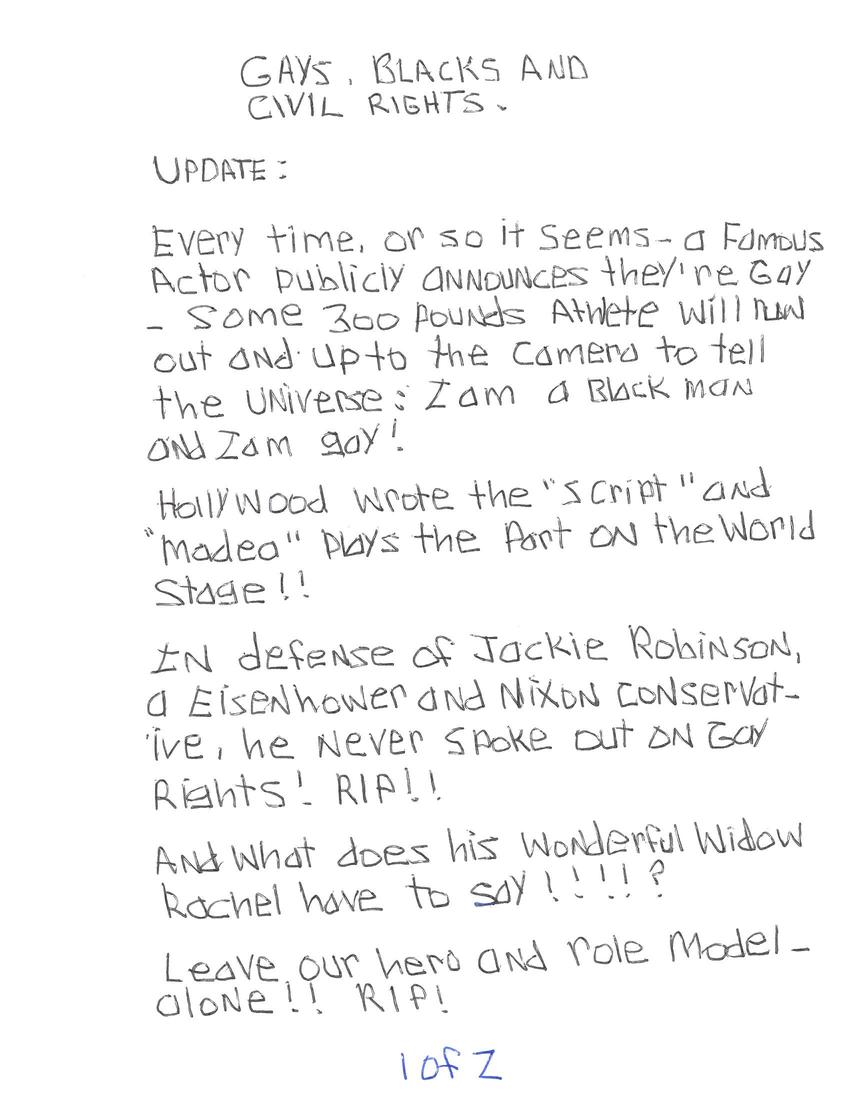 GAYS, BLACKS AND
CIVIL RIGHTS.
UPDATE:
Every time, or so it seems - a Famous
Actor publicly ANNOUNCES they're Gay
- Some 300 pounds Athlete will run
out and up to the camera to tell
the UNiverse: I am a Black man
and I am gay!
Hollywood wrote the "script" and
"Madea" plays the Part on the World
Stage!!
IN defense of Jackie Robinson,
a Eisenhower and Nixon conservat-
ive, he Never spoke out on Gay
Rights! RIP!!
And What does his wonderful Widow
Rachel have to say!!!!?
Leave our hero and role Model -
alone!! RIP!
1 of 2